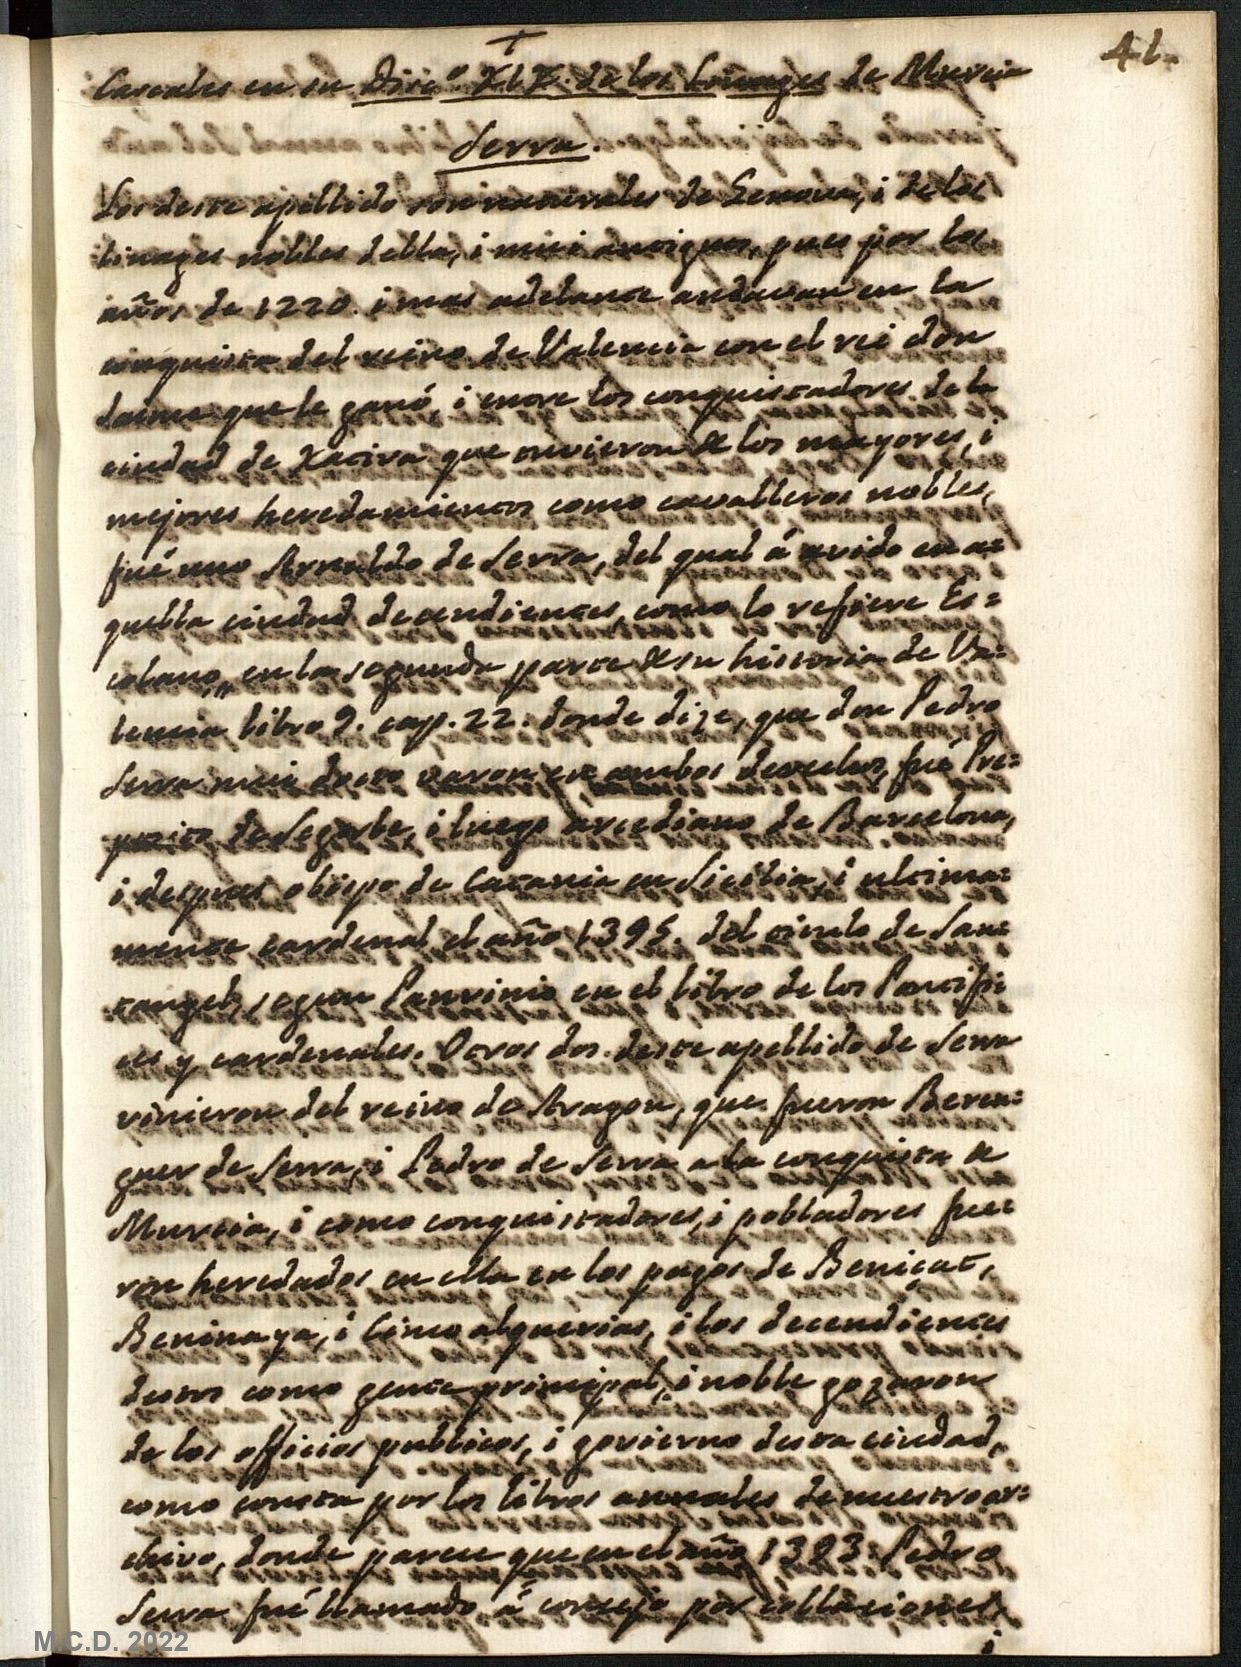 41.
+
Cascales en su Disc.º XIX. de los Linages de Murcia
Serra.
Los deste apellido son naturales de Genova, i de los
linages nobles della, i mui antiguos, pues por los
años de 1220. i mas adelante andavan en la
conquista del reino de Valencia con el rei don
Jaime que le ganó, i entre los conquistadores de la
ciudad de Xativa que tuvieron de los mayores, i
mejores heredamientos como cavalleros nobles,
fué uno Arnaldo de Serra, del qual á avido en a=
quella ciudad decendientes, como lo refiere Es=
colano, en la segunda parte de su historia de Va=
lencia libro 9. cap. 22. donde dize, que don Pedro
Serra mui docto varon en ambos derechos, fué Pre=
posito de Segorbe, i luego arcediano de Barcelona,
i despues obispo de Catania en Sicilia, i ultima=
mente cardenal el año 1395. del titulo de San=
tangel, segun Panvinio en el libro de los Pontifi
ces y cardenales. Otros dos deste apellido de Serra
vinieron del reino de Aragon, que fueron Beren=
guer de Serra, i Pedro de Serra a la conquista de
Murcia, i como conquistadores, i pobladores fue=
ron heredados en ella en los pagos de Beniçat,
Beninaya, i Cinco alquerias, i los decendientes
destos como gente principal, i noble gozaron
de los officios publicos, i govierno desta ciudad,
como consta por los libros annales de nuestro ar=
chivo, donde parece que en el año 1393. Pedro
Serra fué llamado á consejo por collaciones
i
M.C.D. 2022